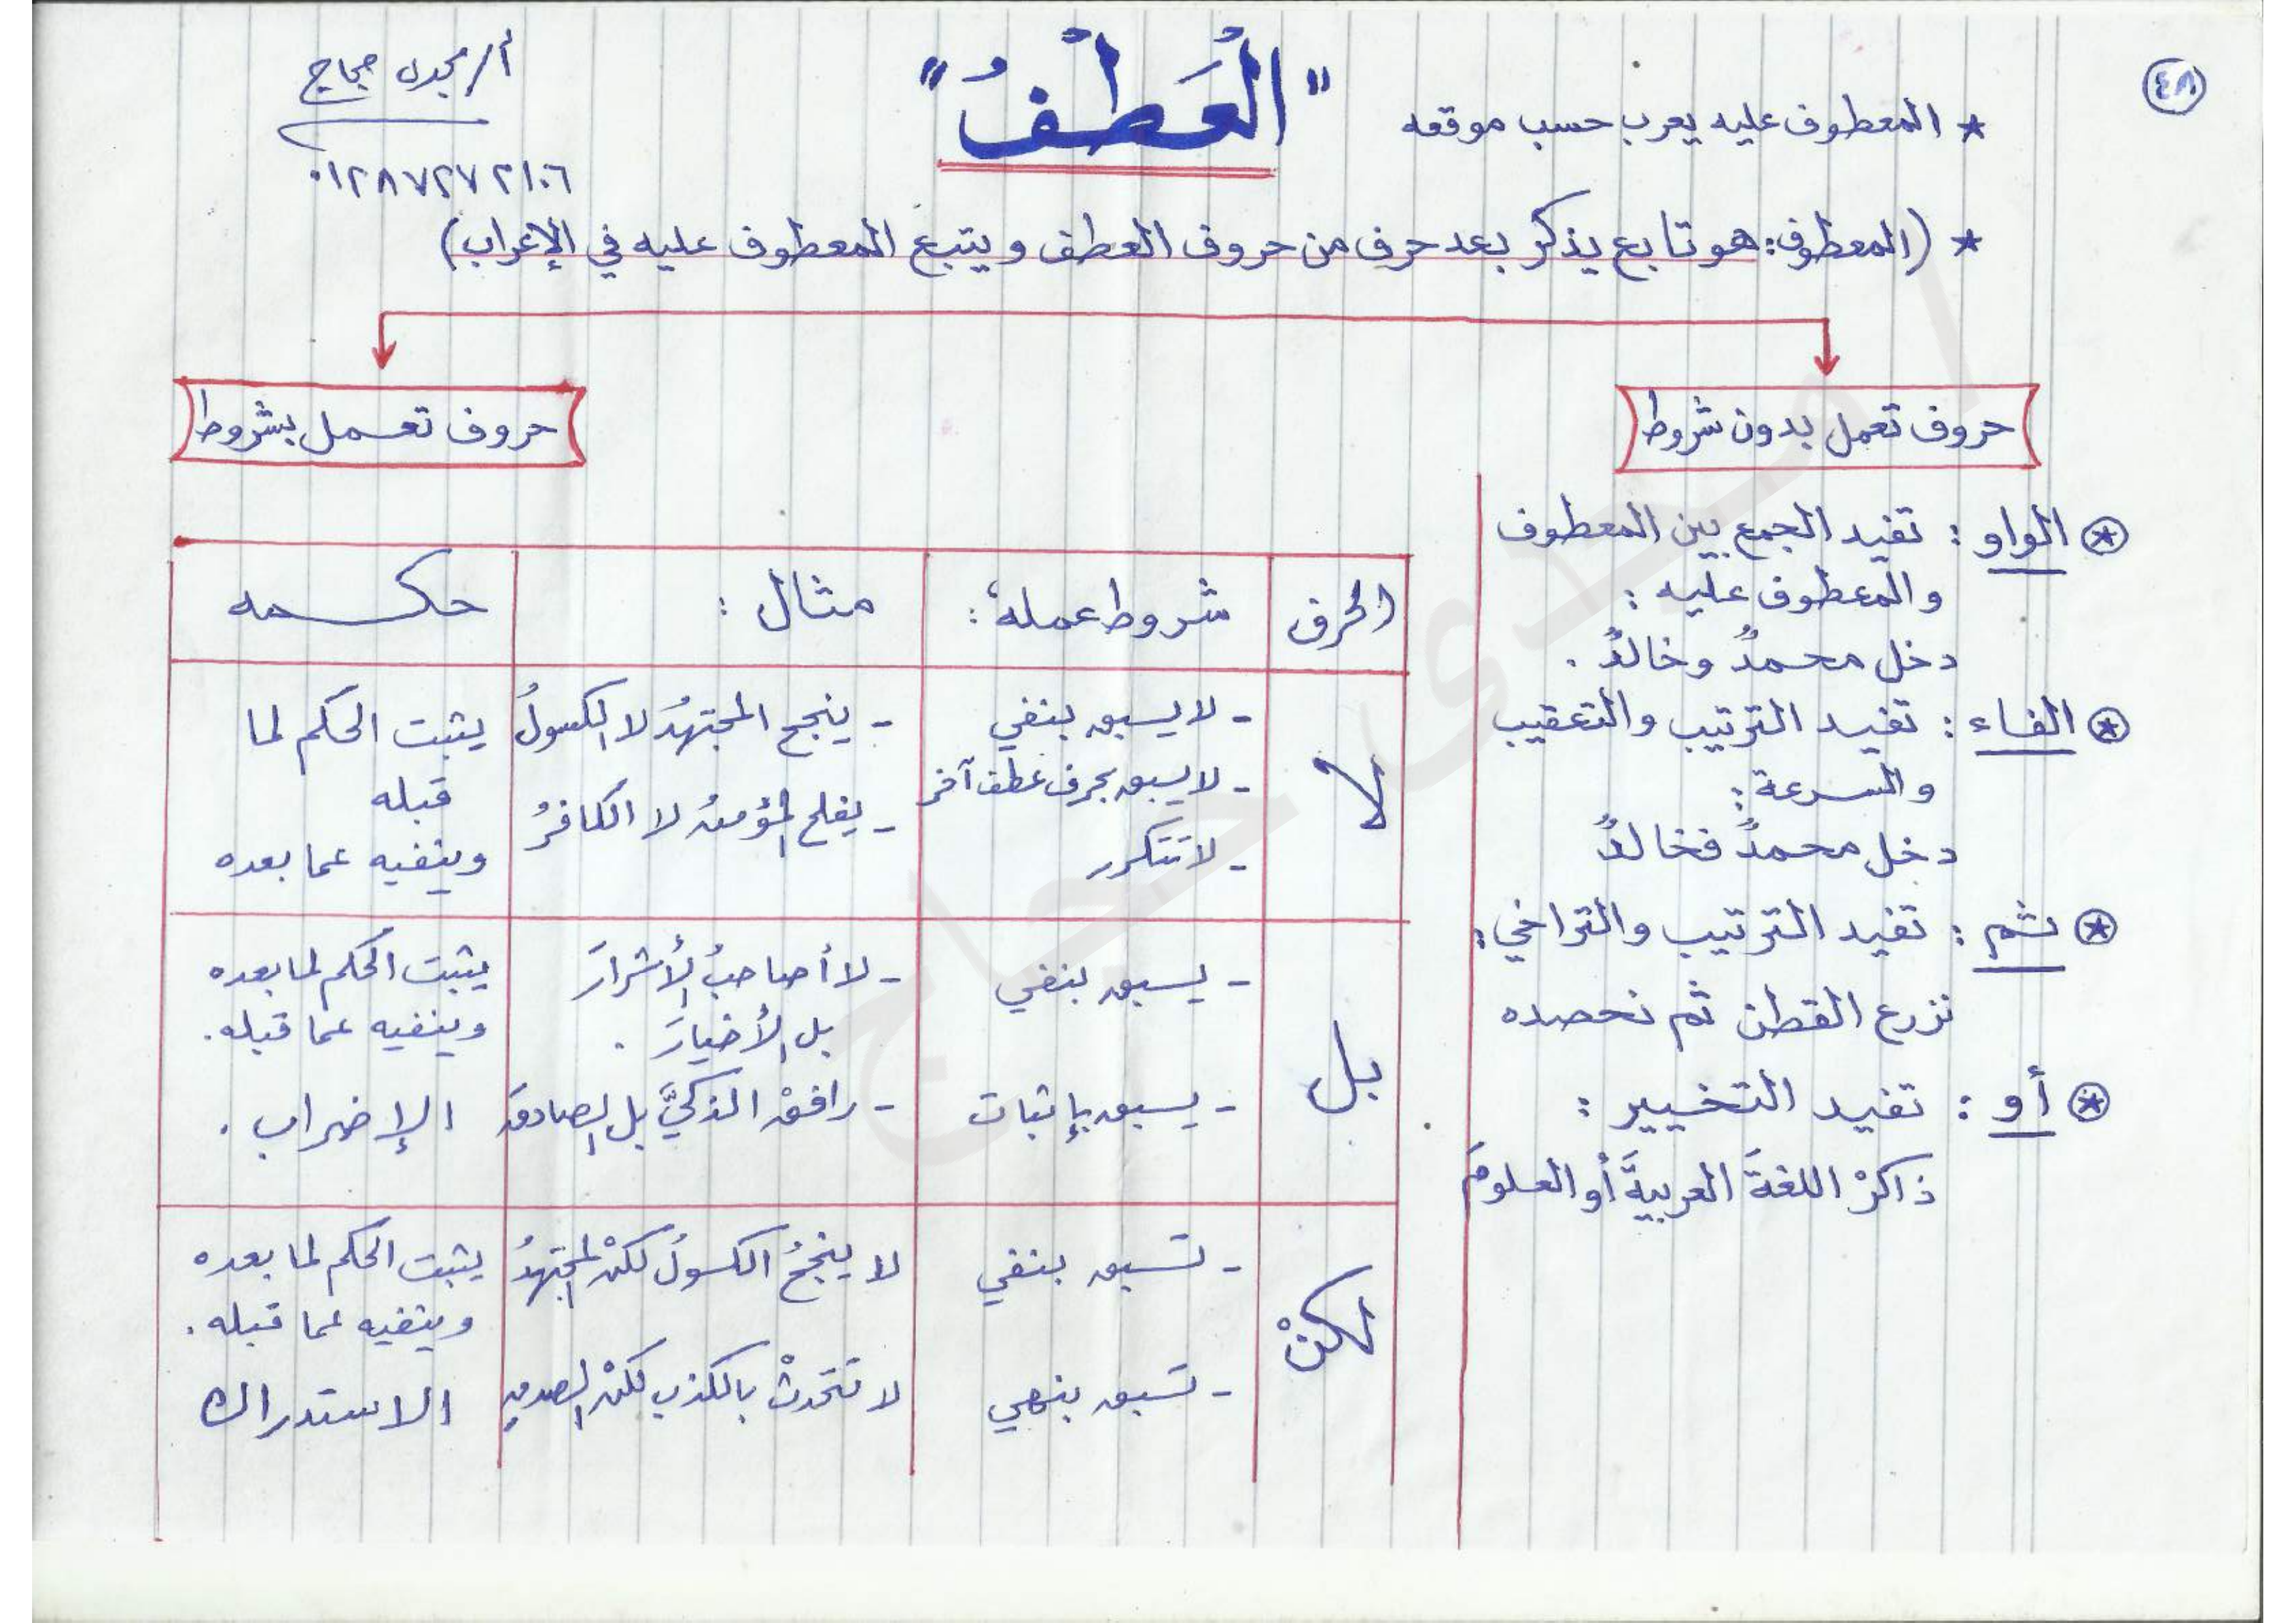 ٤٨
"الْعَطْفُ"
أ/ مجدى حجاج
٠١٢٨٧٢٧٢١٠٦
* المعطوف عليه يعرب حسب موقعه
* (المعطوف: هو تابع يذكر بعد حرف من حروف العطف ويتبع المعطوف عليه في الإعراب)
حروف تعمل بدون شروط
* الواو: تفيد الجمع بين المعطوف
والمعطوف عليه:
دخل محمدٌ وخالدٌ.
* الفاء: تفيد الترتيب والتعقيب
والسرعة:
دخل محمدٌ فخالدٌ
* ثم: تفيد الترتيب والتراخي:
نزرع القطن ثم نحصده
* أو: تفيد التخيير:
ذاكرْ اللغةَ العربيةَ أو العلومَ
حروف تعمل بشروط
الحرف شروط عمله: مثال: حكمه
لا
- لا يسبق بنفي
- لا يسبق بحرف عطف آخر
- لا تتكرر
- ينجح المجتهدُ لا الكسولُ
- يفلح المؤمنُ لا الكافرُ
يثبت الحكم لما
قبله
وينفيه عما بعده
بل
- يسبق بنفي
- يسبق بإثبات
- لا أصاحبُ الأشرارَ
بل الأخيارَ.
- رافقْ الذكيَّ بل الصادقَ
يثبت الحكم لما بعده
وينفيه عما قبله.
الإضراب.
لكنْ
- تسبق بنفي
- تسبق بنهي
لا ينجحُ الكسولُ لكنْ المجتهدُ
لا تتحدثْ بالكذبِ لكنْ الصدقِ
يثبت الحكم لما بعده
وينفيه عما قبله.
الاستدراك
مجدى حجاج